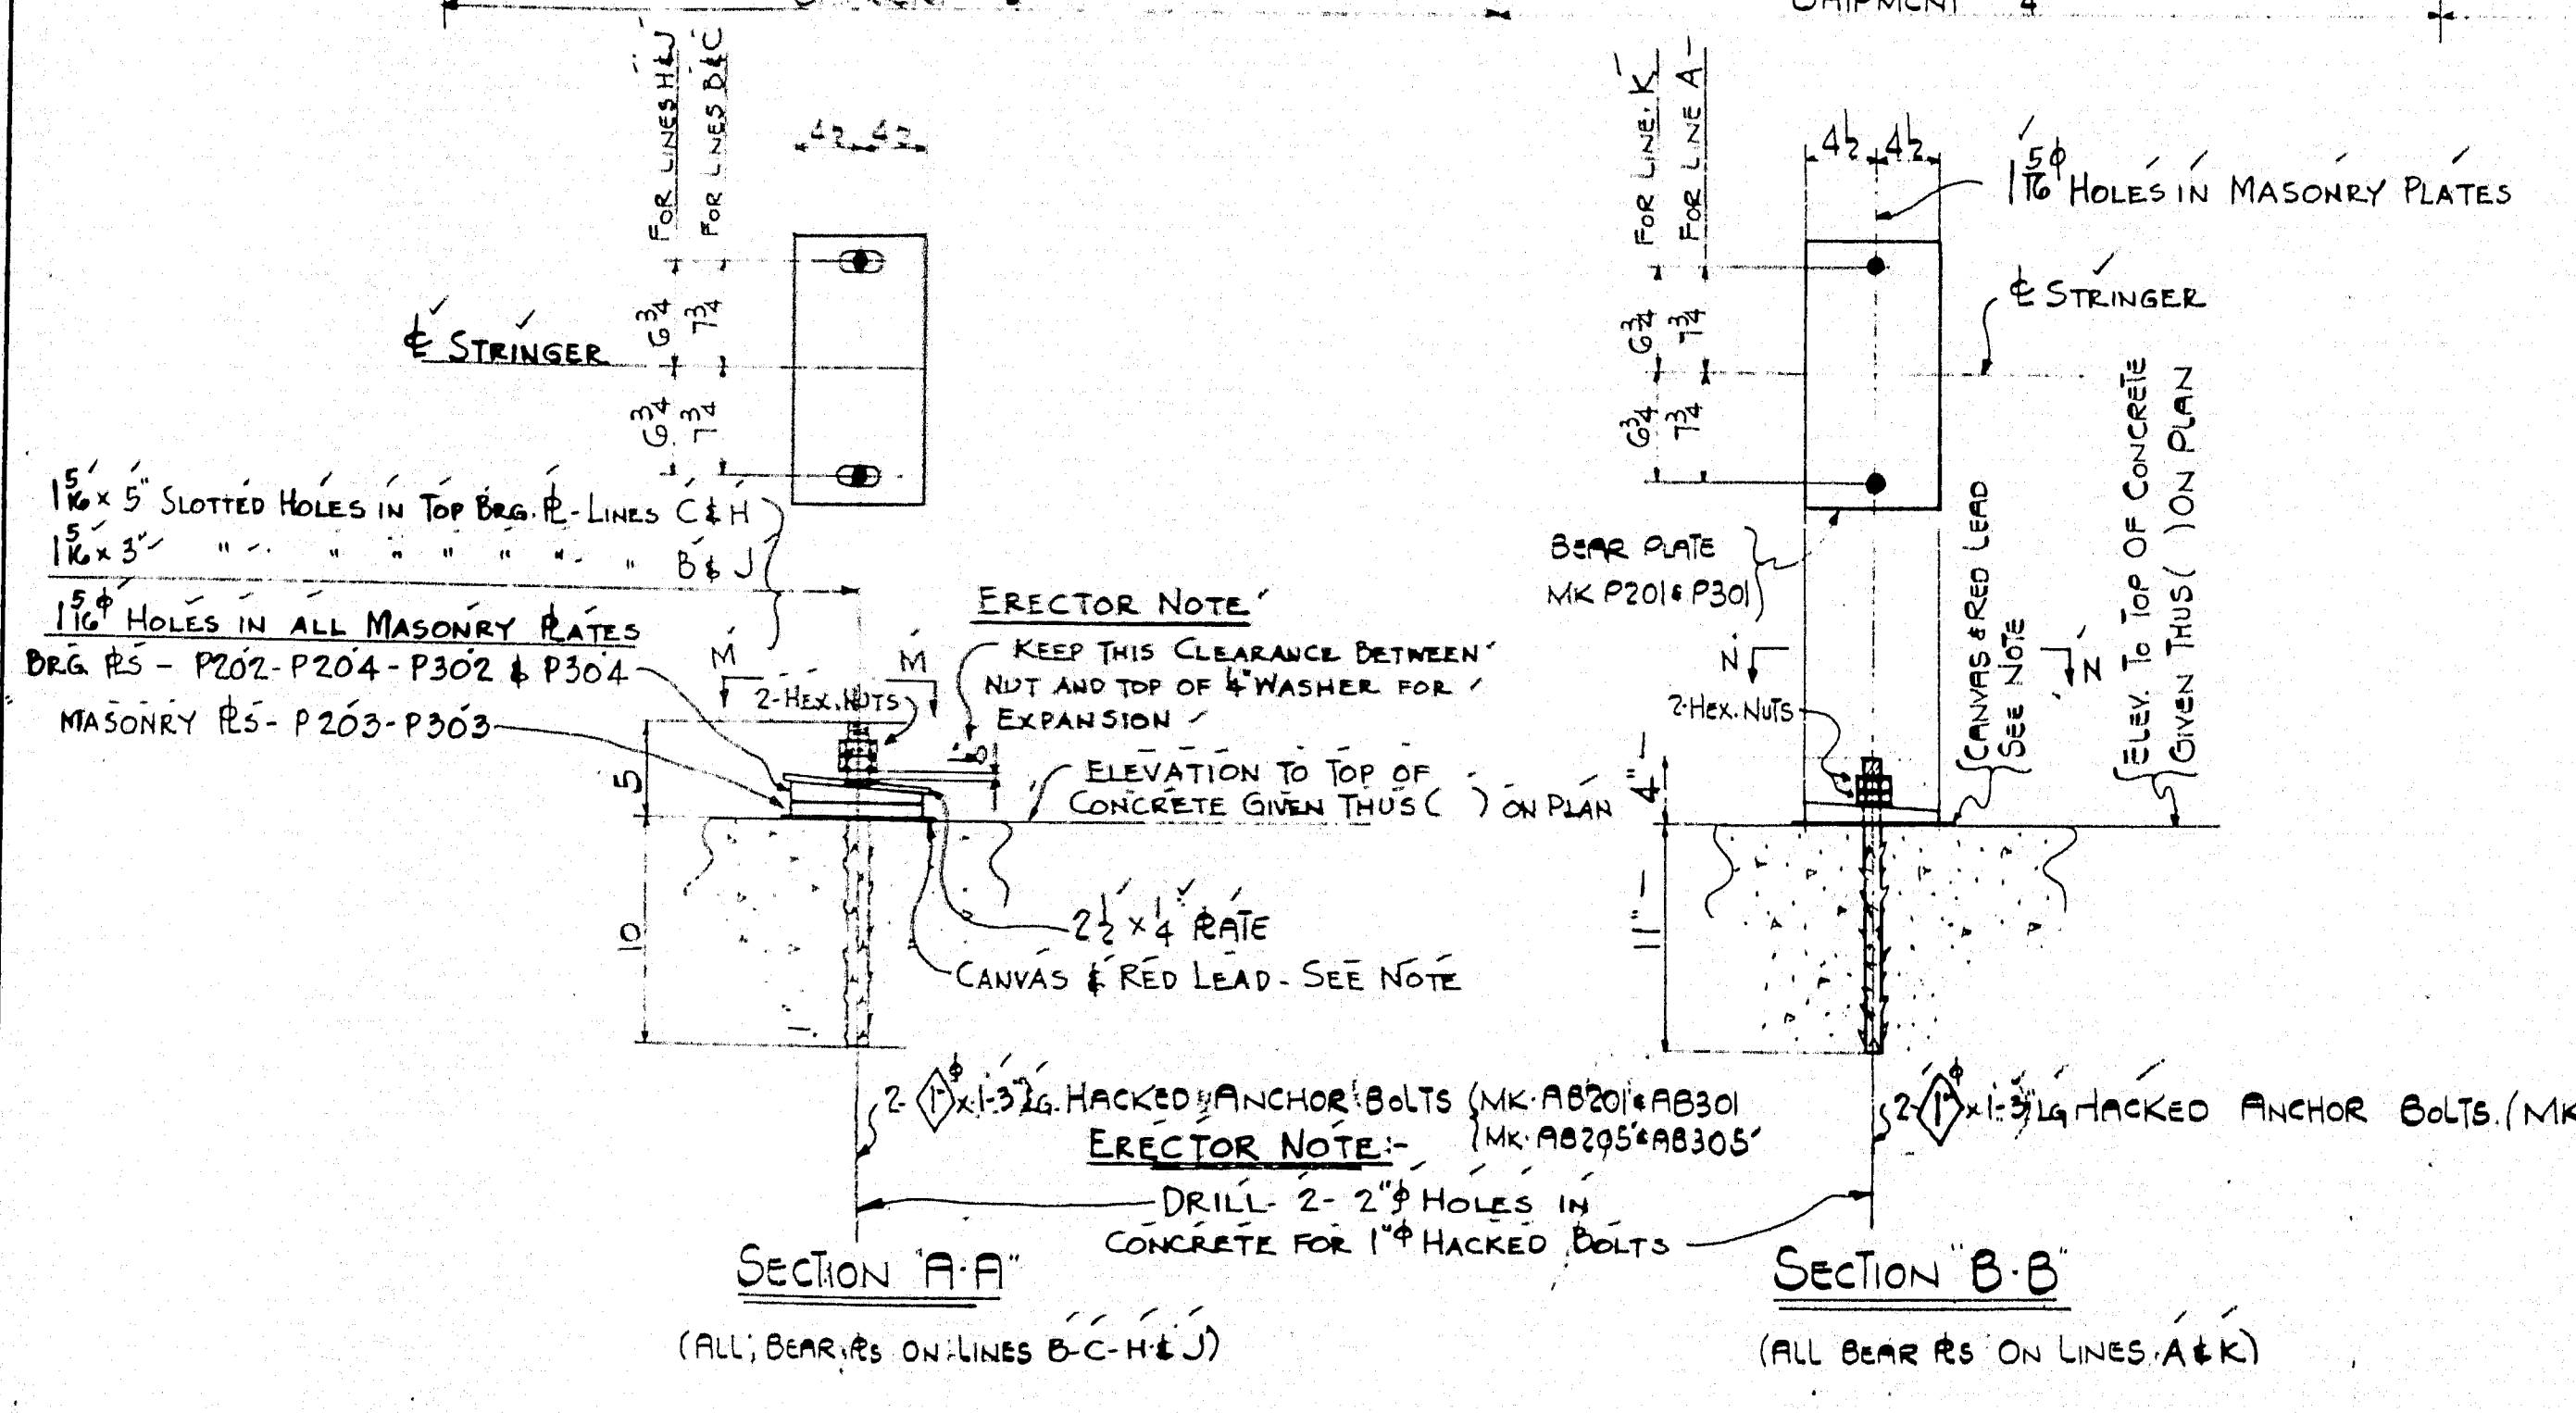 SHIPMENT 4
FOR LINES H & J
FOR LINES B & C
4½ 4½
6¾ 7¾
₵ STRINGER
6¾ 7¾
1 5/16 x 5" SLOTTED HOLES IN TOP BRG. ℙL - LINES C & H
1 5/16 x 3" " " " " " " " B & J
1 5/16 φ HOLES IN ALL MASONRY PLATES
BRG PLS - P202 - P204 - P302 & P304
MASONRY PLS - P203 - P303
M M
2-HEX. NUTS
ERECTOR NOTE
KEEP THIS CLEARANCE BETWEEN
NUT AND TOP OF ¼" WASHER FOR
EXPANSION
1/8
5
ELEVATION TO TOP OF
CONCRETE GIVEN THUS ( ) ON PLAN
10
2½ x ¼" PLATE
CANVAS & RED LEAD - SEE NOTE
2- 1" φ x 1-3" LG. HACKED ANCHOR BOLTS (MK. AB201 & AB301
(MK. AB205 & AB305
ERECTOR NOTE:-
DRILL - 2- 2"φ HOLES IN
CONCRETE FOR 1"φ HACKED BOLTS
SECTION "A-A"
(ALL BEAR PLS ON LINES B-C-H & J)
FOR LINE K
FOR LINE A
4½ 4½
1 5/16 φ HOLES IN MASONRY PLATES
6¾ 7¾
₵ STRINGER
6¾ 7¾
BEAR PLATE
MK P201 & P301
N N
2-HEX. NUTS
CANVAS & RED LEAD
SEE NOTE
ELEV. TO TOP OF CONCRETE
GIVEN THUS ( ) ON PLAN
4"
11"
2- 1" φ x 1-3" LG HACKED ANCHOR BOLTS. (MK
SECTION "B-B"
(ALL BEAR PLS ON LINES A & K)